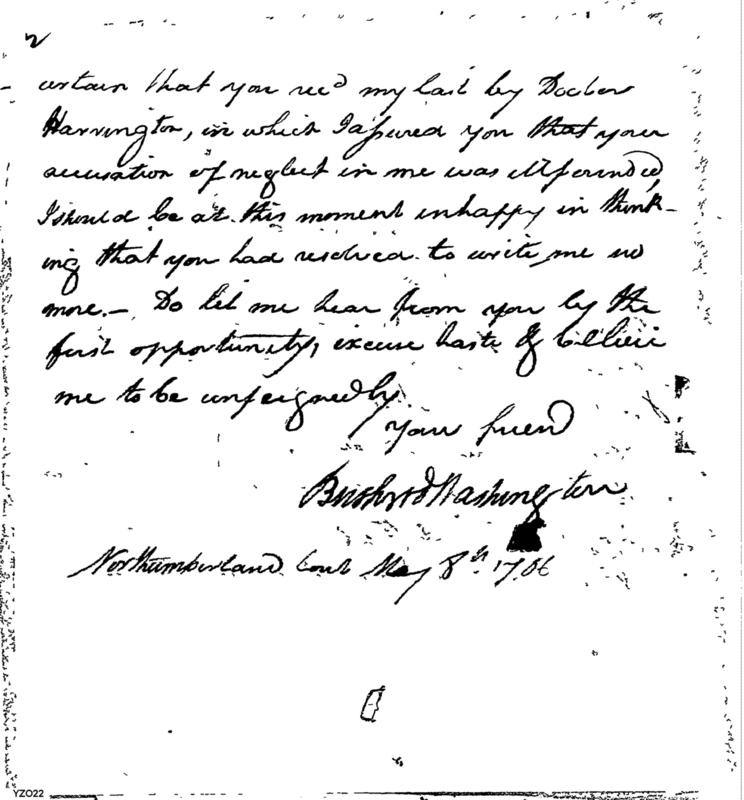 2
certain that you recd my last by Doctor
Harrington, in which I assured you that your
accusation of neglect in me was illfounded,
I should be at this moment unhappy in think-
ing that you had resolved to write me no
more. — Do let me hear from you by the
first opportunity, excuse haste & believe
me to be unfeignedly
your friend
Bushrod Washington
Northumberland Court May 8th. 1786
YZO22